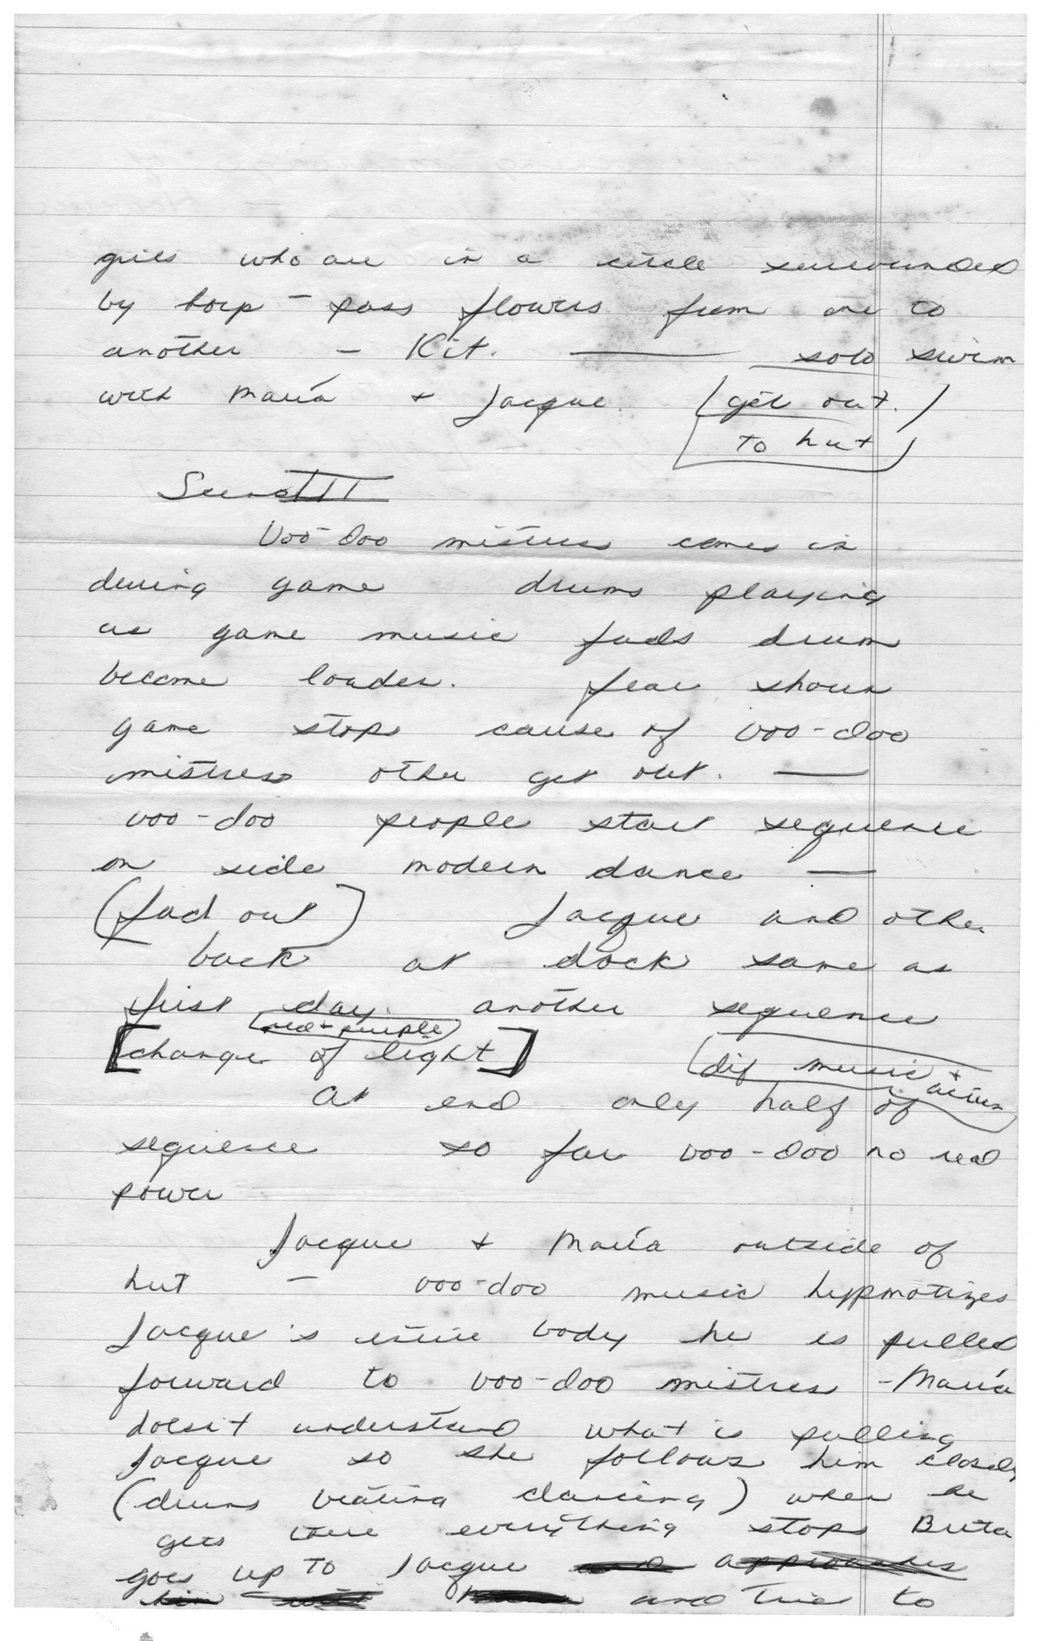 girls who are in a circle surrounded
by hoop - pass flowers from one to
another - Kit. —— solo swim
with María + Jacque. (get out.)
to hut
Scene III
Voo-doo mistress comes in
during game drums playing
as game music fads drum
become louder. fear shown
game stops cause of voo-doo
mistress other get out. —
voo-doo people start sequence
on side modern dance —
(fad out) Jacque and other
back at dock same as
first day. another sequence
red + purple
[change of light] (dif music +
action)
At end only half of
sequence so far voo-doo no real
power
Jacque + María outside of
hut - voo-doo music hypnotizes
Jacque's entire body he is pulled
forward to voo-doo mistress - María
doesn't understand what is pulling
Jacque so she follows him closely
(drums beating dancing) when he
gets there everything stops Buta
goes up to Jacque and approaches
him with and tries to